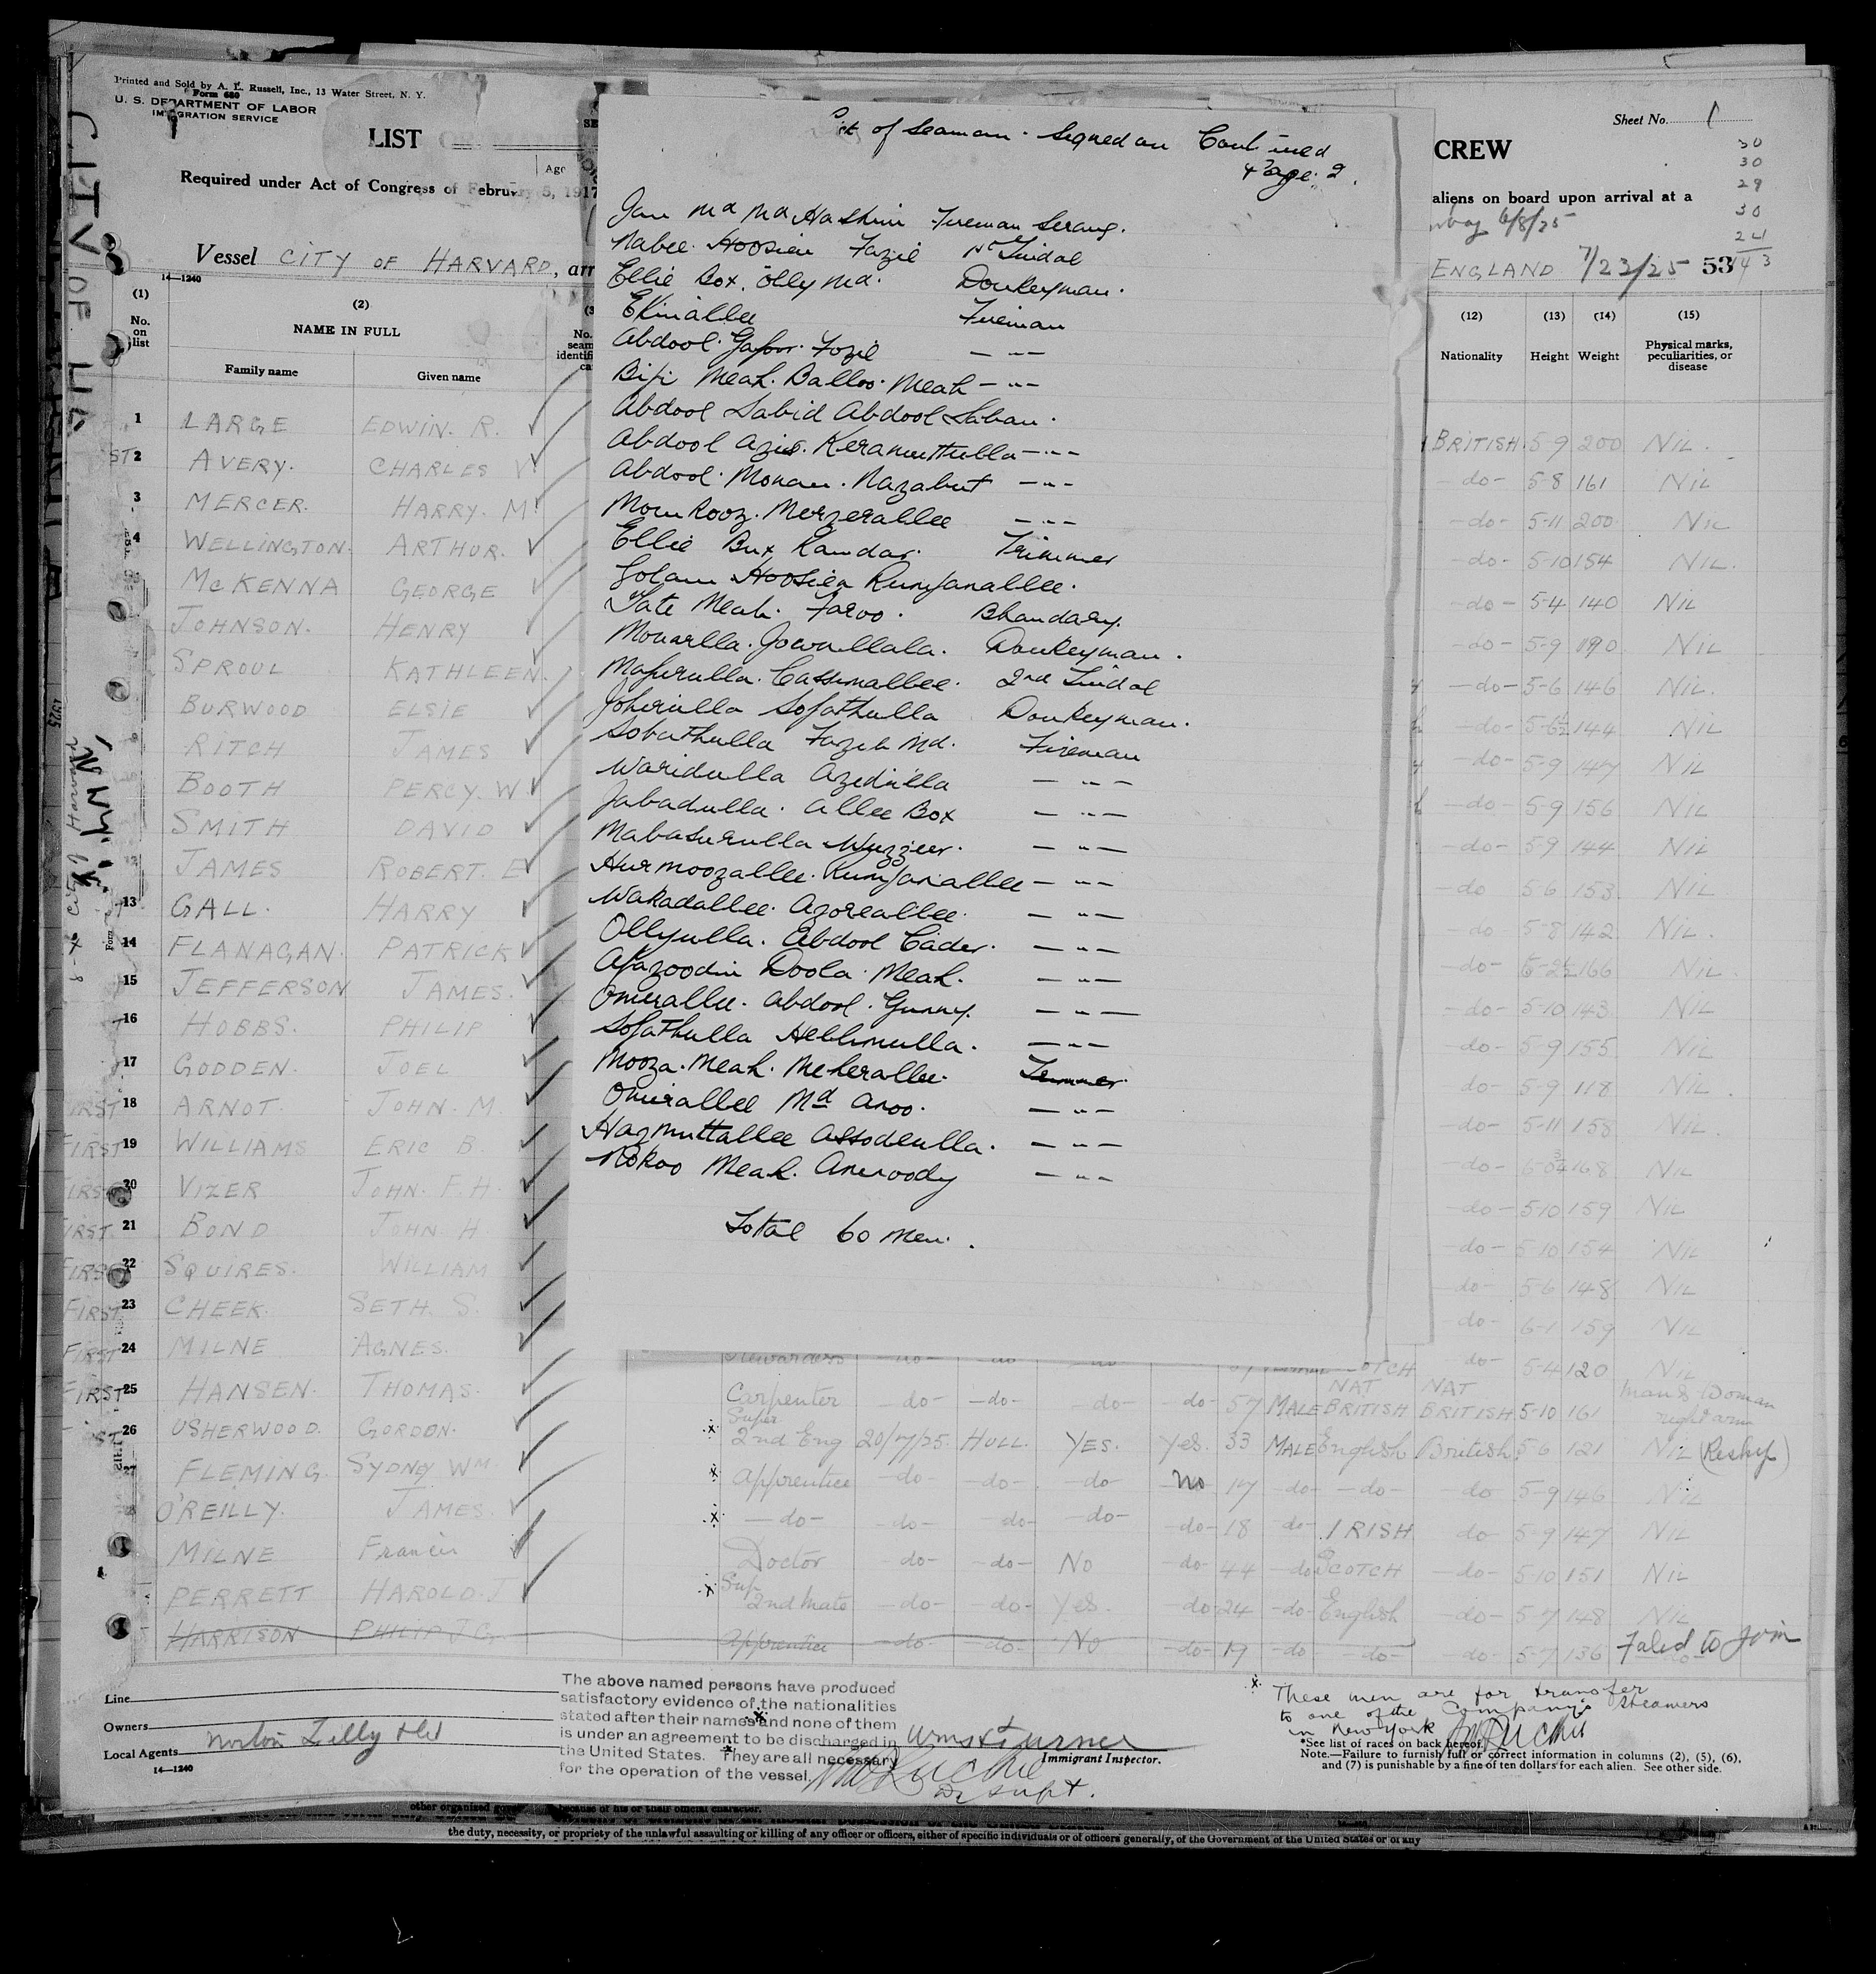 Printed and Sold by A. L. Russell, Inc., 13 Water Street, N. Y.
Form 680
U. S. DEPARTMENT OF LABOR
IMMIGRATION SERVICE
LIST
Age
Required under Act of Congress of February 5, 1917
Vessel CITY OF HARVARD, arr
14—1240
(1) (2)
No. on list
NAME IN FULL
Family name Given name
1 LARGE EDWIN. R.
2 AVERY. CHARLES V
3 MERCER. HARRY. M.
4 WELLINGTON. ARTHUR.
McKENNA GEORGE
JOHNSON. HENRY
SPROUL KATHLEEN.
BURWOOD ELSIE
RITCH JAMES
BOOTH PERCY. W
SMITH DAVID
12 JAMES ROBERT. E
13 GALL. HARRY
14 FLANAGAN. PATRICK
15 JEFFERSON JAMES.
16 HOBBS. PHILIP
17 GODDEN. JOEL
18 ARNOT. JOHN. M.
19 WILLIAMS ERIC B.
20 VIZER JOHN. F. H.
21 BOND JOHN H
22 SQUIRES. WILLIAM
23 CHEEK. SETH. S.
24 MILNE AGNES.
25 HANSEN. THOMAS.
26 USHERWOOD. GORDON.
27 FLEMING SYDNEY Wm.
O'REILLY. JAMES.
MILNE Francis
PERRETT HAROLD. J
HARRISON PHILIP J G.
List of Seamen. Signed on Continued
Page 2.
Jan Md Md Hashim Fireman Serang.
Nabee Hoosien Fazil 1st Tindal
Ellie Box. Olly Md. Donkeyman.
Ekinallee Fireman
Abdool. Gafoor. Fozil — " —
Bifi Meah. Balloo. Meah — " —
Abdool Sabid Abdool Saban.
Abdool Azis. Keramuttulla — " —
Abdool. Monan. Nazabut — " —
Momrooz. Merzerallee — " —
Ellie Bux Kamdar. Trimmer
Golam Hoosien Rumjanallee.
Tate Meah. Faroo. Bhandary.
Monarlla. Gowullala. Donkeyman.
Mafurulla. Cassimallee. 2nd Tindal
Joherulla Sofathulla Donkeyman.
Sobathulla Fazil Md. Fireman
Waridulla Azidulla — " —
Jabadulla. Allee Box — " —
Mabasurulla Wuzzeer. — " —
Hurmoozallee. Rumjanallee — " —
Wakadallee. Azoreallee. — " —
Ollyulla. Abdool Cader. — " —
Afazoodin Doola. Meah. — " —
Omerallee. Abdool. Gunny. — " —
Sofathulla Hellimulla. — " —
Mooza. Meah. Meherallee. Trimmer
Omerallee Md Aroo. — " —
Hazmuttallee Assodeulla. — " —
Nokoo Meah. Amroody — " —
Total 60 Men.
Sheet No. 1
CREW
30
30
29
30
24
143
aliens on board upon arrival at a
6/8/25
ENGLAND 7/23/25 53
(12) (13) (14) (15)
Nationality Height Weight Physical marks, peculiarities, or disease
BRITISH. 5-9 200 NIL.
-do- 5-8 161 NIL
-do- 5-11 200 NIL
-do- 5-10 154 NIL.
-do- 5-4 140 NIL
-do- 5-9 190 NIL
-do- 5-6 146 NIL.
-do- 5-6½ 144 NIL
-do- 5-9 147 NIL
-do- 5-9 156 NIL
-do- 5-9 144 NIL
do 5-6 153 NIL
do 5-8 142 NIL.
-do- 5-2½ 166 NIL.
-do- 5-10 143 NIL
-do- 5-9 155 NIL
do- 5-9 118 NIL.
-do- 5-11 158 NIL.
-do- 6-0¾ 168 NIL
-do- 5-10 159 NIL
-do- 5-10 154 NIL
-do- 5-6 148 NIL
-do- 6-1 159 NIL
-do- 5-4 120 NIL
Carpenter -do- -do- -do- -do- 57 MALE NAT BRITISH NAT BRITISH 5-10 161 Man & Woman right arm
Super 2nd Eng 20/7/25 HULL. YES. Yes. 33 MALE English British 5-6 121 NIL (Reship)
Apprentice -do- -do- -do- No 17 -do- -do- -do 5-9 146 NIL
-do- -do- -do- -do- -do- 18 do- IRISH do 5-9 147 NIL
Doctor -do- -do- No -do- 44 -do SCOTCH -do- 5-10 151 NIL
Sup 2nd Mate -do- -do- Yes. -do- 24 -do- English -do- 5-7 148 NIL
Apprentice -do- -do- No -do- 17 -do -do- -do- 5-7 136 Failed to Join
Line
Owners
Local Agents Norton Lilly & Co
14—1240
The above named persons have produced
satisfactory evidence of the nationalities
stated after their names and none of them
is under an agreement to be discharged in
the United States. They are all necessary
for the operation of the vessel.
Immigrant Inspector.
These men are for transfer
to one of the Company's Steamers
in New York
*See list of races on back hereof.
Note.—Failure to furnish full or correct information in columns (2), (5), (6),
and (7) is punishable by a fine of ten dollars for each alien. See other side.
other organized because of his or their official character.
the duty, necessity, or propriety of the unlawful assaulting or killing of any officer or officers, either of specific individuals or of officers generally, of the Government of the United States or of any